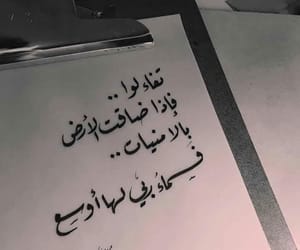 تفاءلوا ..
فإذا ضاقت الأرض
بالأمنيات ..
فسماء ربي لها أوسع